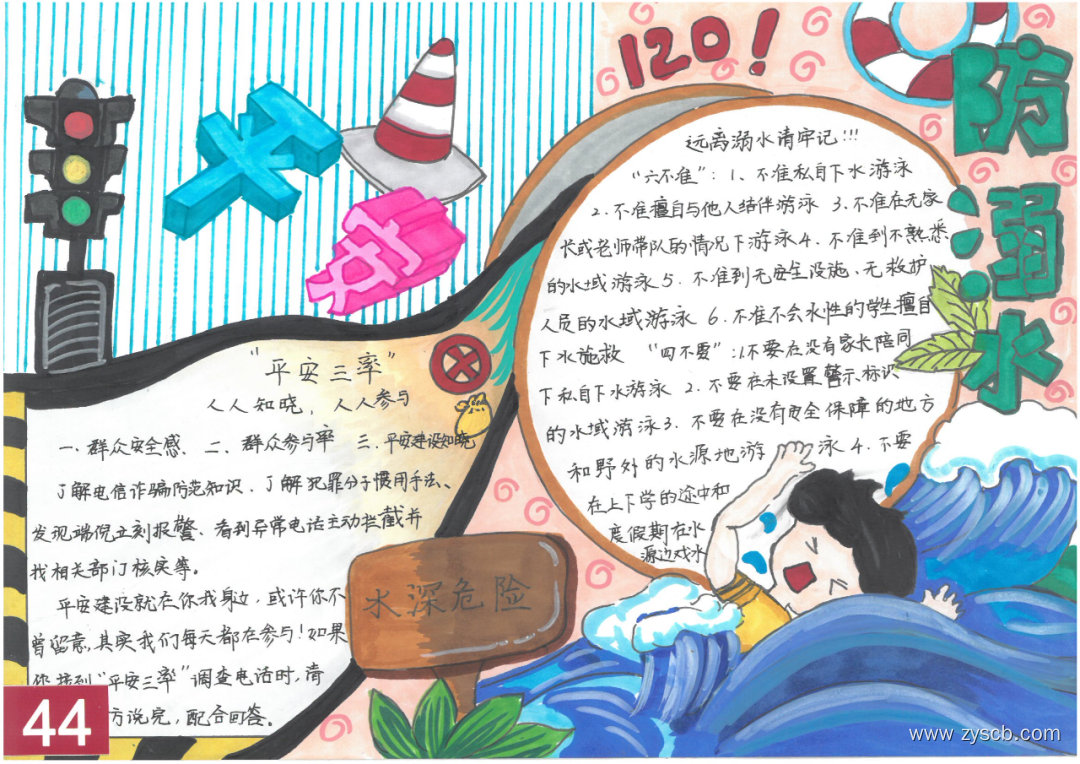 120！
防溺水
平安
远离溺水请牢记!!!
“六不准”：1、不准私自下水游泳
2、不准擅自与他人结伴游泳 3、不准在无家
长或老师带队的情况下游泳 4、不准到不熟悉
的水域游泳 5、不准到无安全设施、无救护
人员的水域游泳 6、不准不会水性的学生擅自
下水施救 “四不要”：1不要在没有家长陪同
下私自下水游泳 2、不要在未设置警示标识
的水域游泳 3、不要在没有安全保障的地方
和野外的水源地游泳 4、不要
在上下学的途中和
度假期在水
源边戏水
“平安三率”
人人知晓，人人参与
一、群众安全感、二、群众参与率 三、平安建设知晓
了解电信诈骗防范知识、了解犯罪分子惯用手法、
发现端倪立刻报警、看到异常电话主动拦截并
找相关部门核实等。
平安建设就在你我身边，或许你不
曾留意，其实我们每天都在参与！如果
你接到“平安三率”调查电话时，请
方说完，配合回答。
水深危险
44
www.zyscb.com